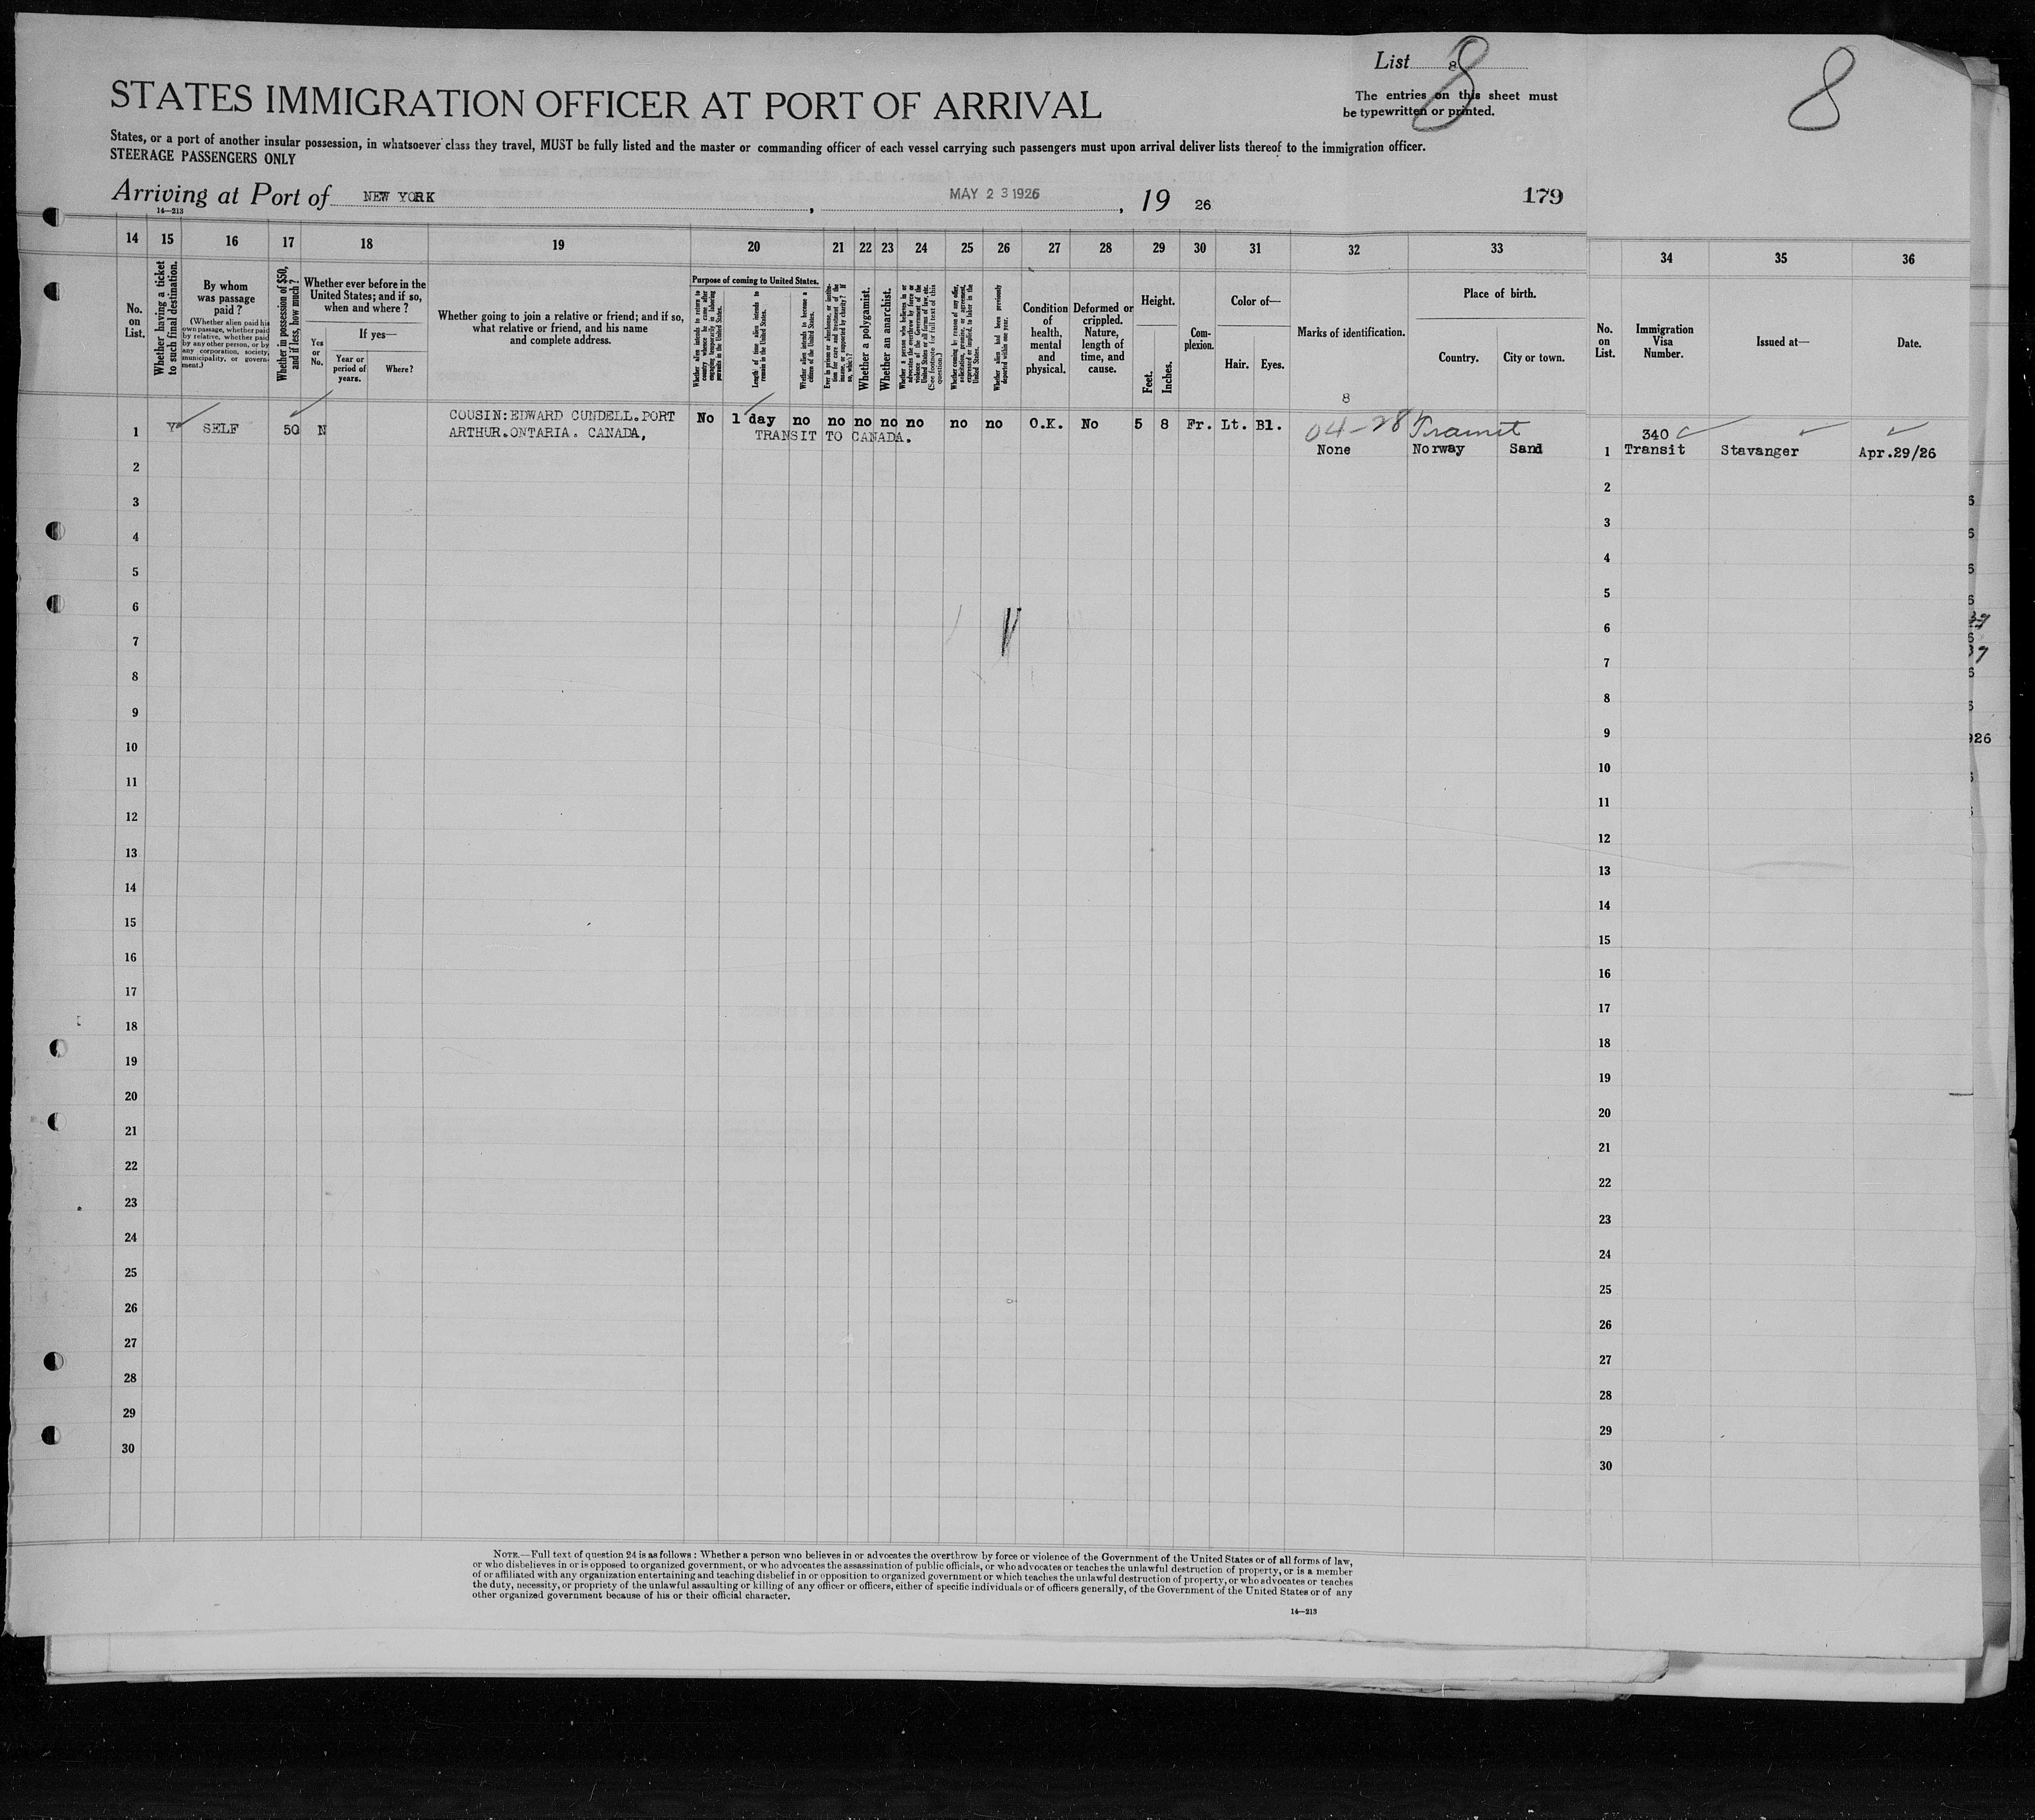 List 8 8
8
The entries on this sheet must
be typewritten or printed.
STATES IMMIGRATION OFFICER AT PORT OF ARRIVAL
States, or a port of another insular possession, in whatsoever class they travel, MUST be fully listed and the master or commanding officer of each vessel carrying such passengers must upon arrival deliver lists thereof to the immigration officer.
STEERAGE PASSENGERS ONLY
Arriving at Port of NEW YORK, MAY 23 1926, 19 26
179
14—213
14 15 16 17 18 19 20 21 22 23 24 25 26 27 28 29 30 31 32 33 34 35 36
No. on List.
Whether having a ticket to such final destination.
By whom was passage paid?
(Whether alien paid his own passage, whether paid by relative, whether paid by any other person, or by any corporation, society, municipality, or government.)
Whether in possession of $50, and if less, how much?
Whether ever before in the United States; and if so, when and where?
Yes or No.
If yes—
Year or period of years.
Where?
Whether going to join a relative or friend; and if so, what relative or friend, and his name and complete address.
Purpose of coming to United States.
Whether alien intends to return to country whence he came after engaging temporarily in laboring pursuits in the United States.
Length of time alien intends to remain in the United States.
Whether alien intends to become a citizen of the United States.
Ever in prison or almshouse, or institution for care and treatment of the insane, or supported by charity? If so, which?
Whether a polygamist.
Whether an anarchist.
Whether a person who believes in or advocates the overthrow by force or violence of the Government of the United States or all forms of law, etc. (See footnote for full text of this question.)
Whether coming by reason of any offer, solicitation, promise, or agreement, expressed or implied, to labor in the United States.
Whether alien had been previously deported within one year.
Condition of health, mental and physical.
Deformed or crippled. Nature, length of time, and cause.
Height.
Feet. Inches.
Complexion.
Color of—
Hair. Eyes.
Marks of identification.
Place of birth.
Country. City or town.
No. on List.
Immigration Visa Number.
Issued at—
Date.
8
1 Y SELF 50 N COUSIN:EDWARD CUNDELL.PORT No 1 day no no no no no no no O.K. No 5 8 Fr. Lt. Bl. 04-28 Transit 340 C
ARTHUR.ONTARIA. CANADA, TRANSIT TO CANADA. None Norway Sand 1 Transit Stavanger Apr.29/26
2 2
3 3
4 4
5 5
6 6
7 7
8 8
9 9
10 10
11 11
12 12
13 13
14 14
15 15
16 16
17 17
18 18
19 19
20 20
21 21
22 22
23 23
24 24
25 25
26 26
27 27
28 28
29 29
30 30
NOTE.—Full text of question 24 is as follows: Whether a person who believes in or advocates the overthrow by force or violence of the Government of the United States or of all forms of law,
or who disbelieves in or is opposed to organized government, or who advocates the assassination of public officials, or who advocates or teaches the unlawful destruction of property, or is a member
of or affiliated with any organization entertaining and teaching disbelief in or opposition to organized government or which teaches the unlawful destruction of property, or who advocates or teaches
the duty, necessity, or propriety of the unlawful assaulting or killing of any officer or officers, either of specific individuals or of officers generally, of the Government of the United States or of any
other organized government because of his or their official character.
14—213